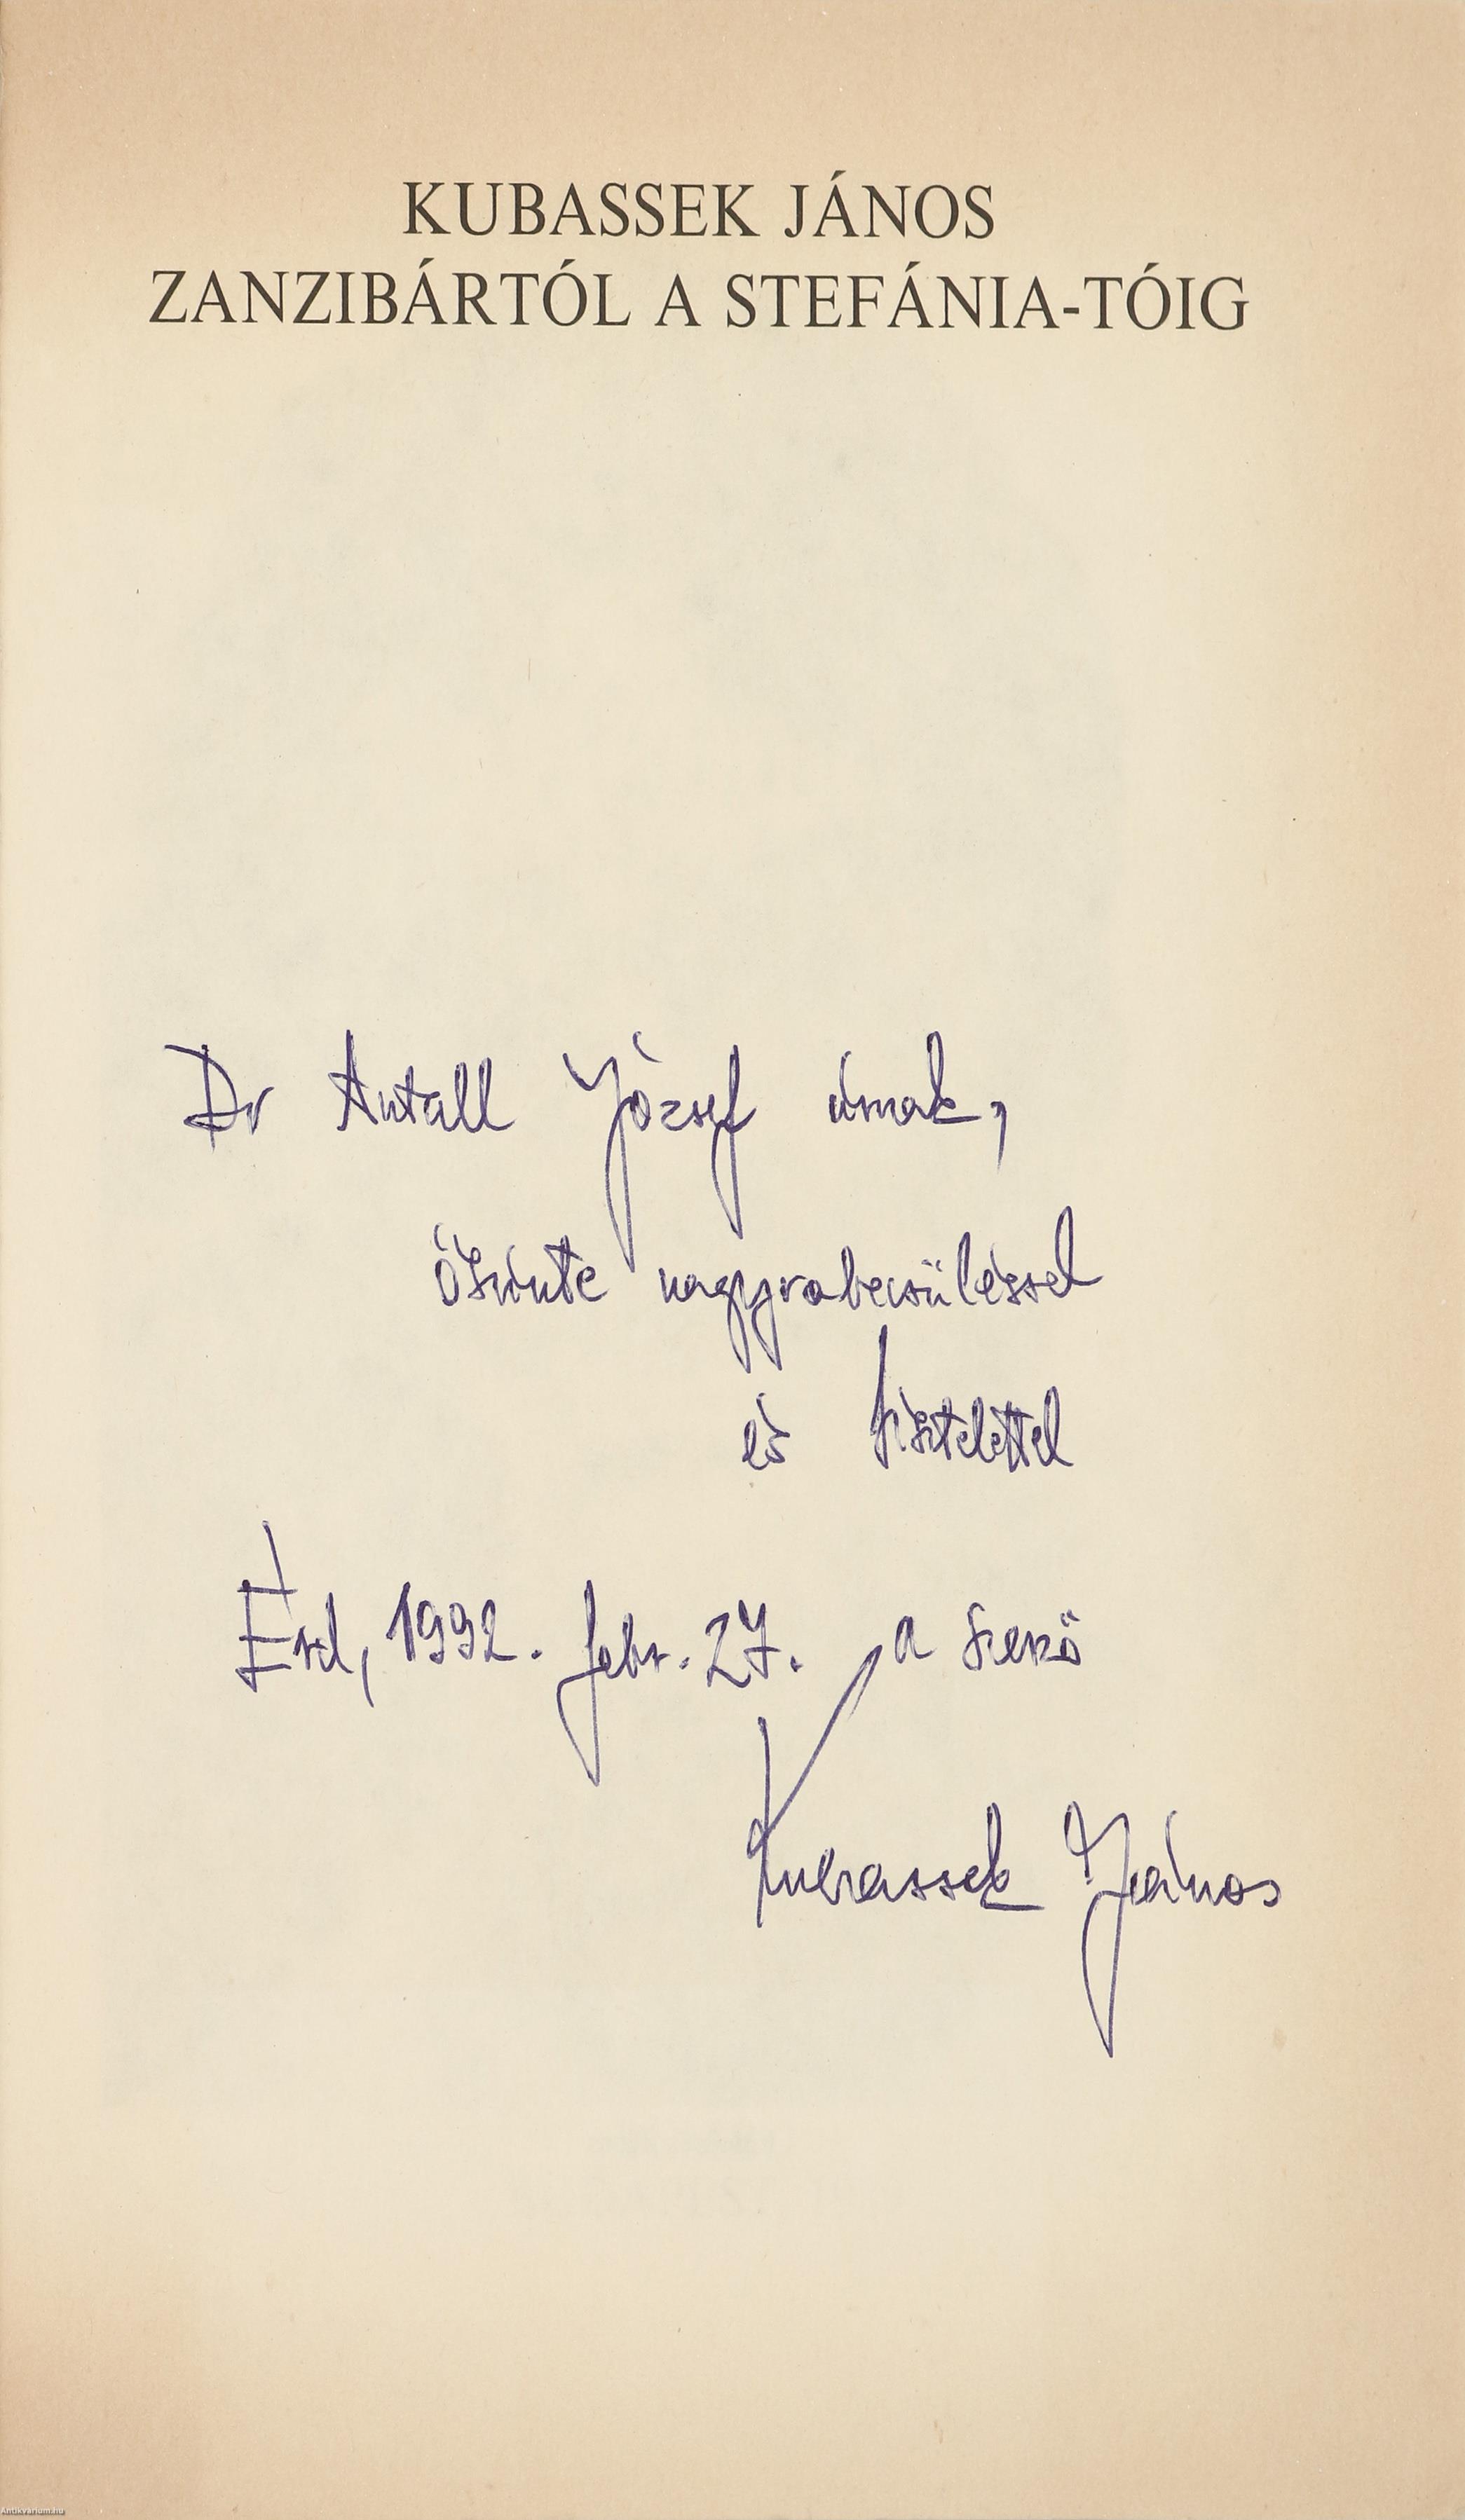 KUBASSEK JÁNOS
ZANZIBÁRTÓL A STEFÁNIA-TÓIG
Dr Antall József úrnak,
őszinte nagyrabecsüléssel
és tisztelettel
Érd, 1992. febr. 27. a szerző
Kubassek János
Antikvarium.hu